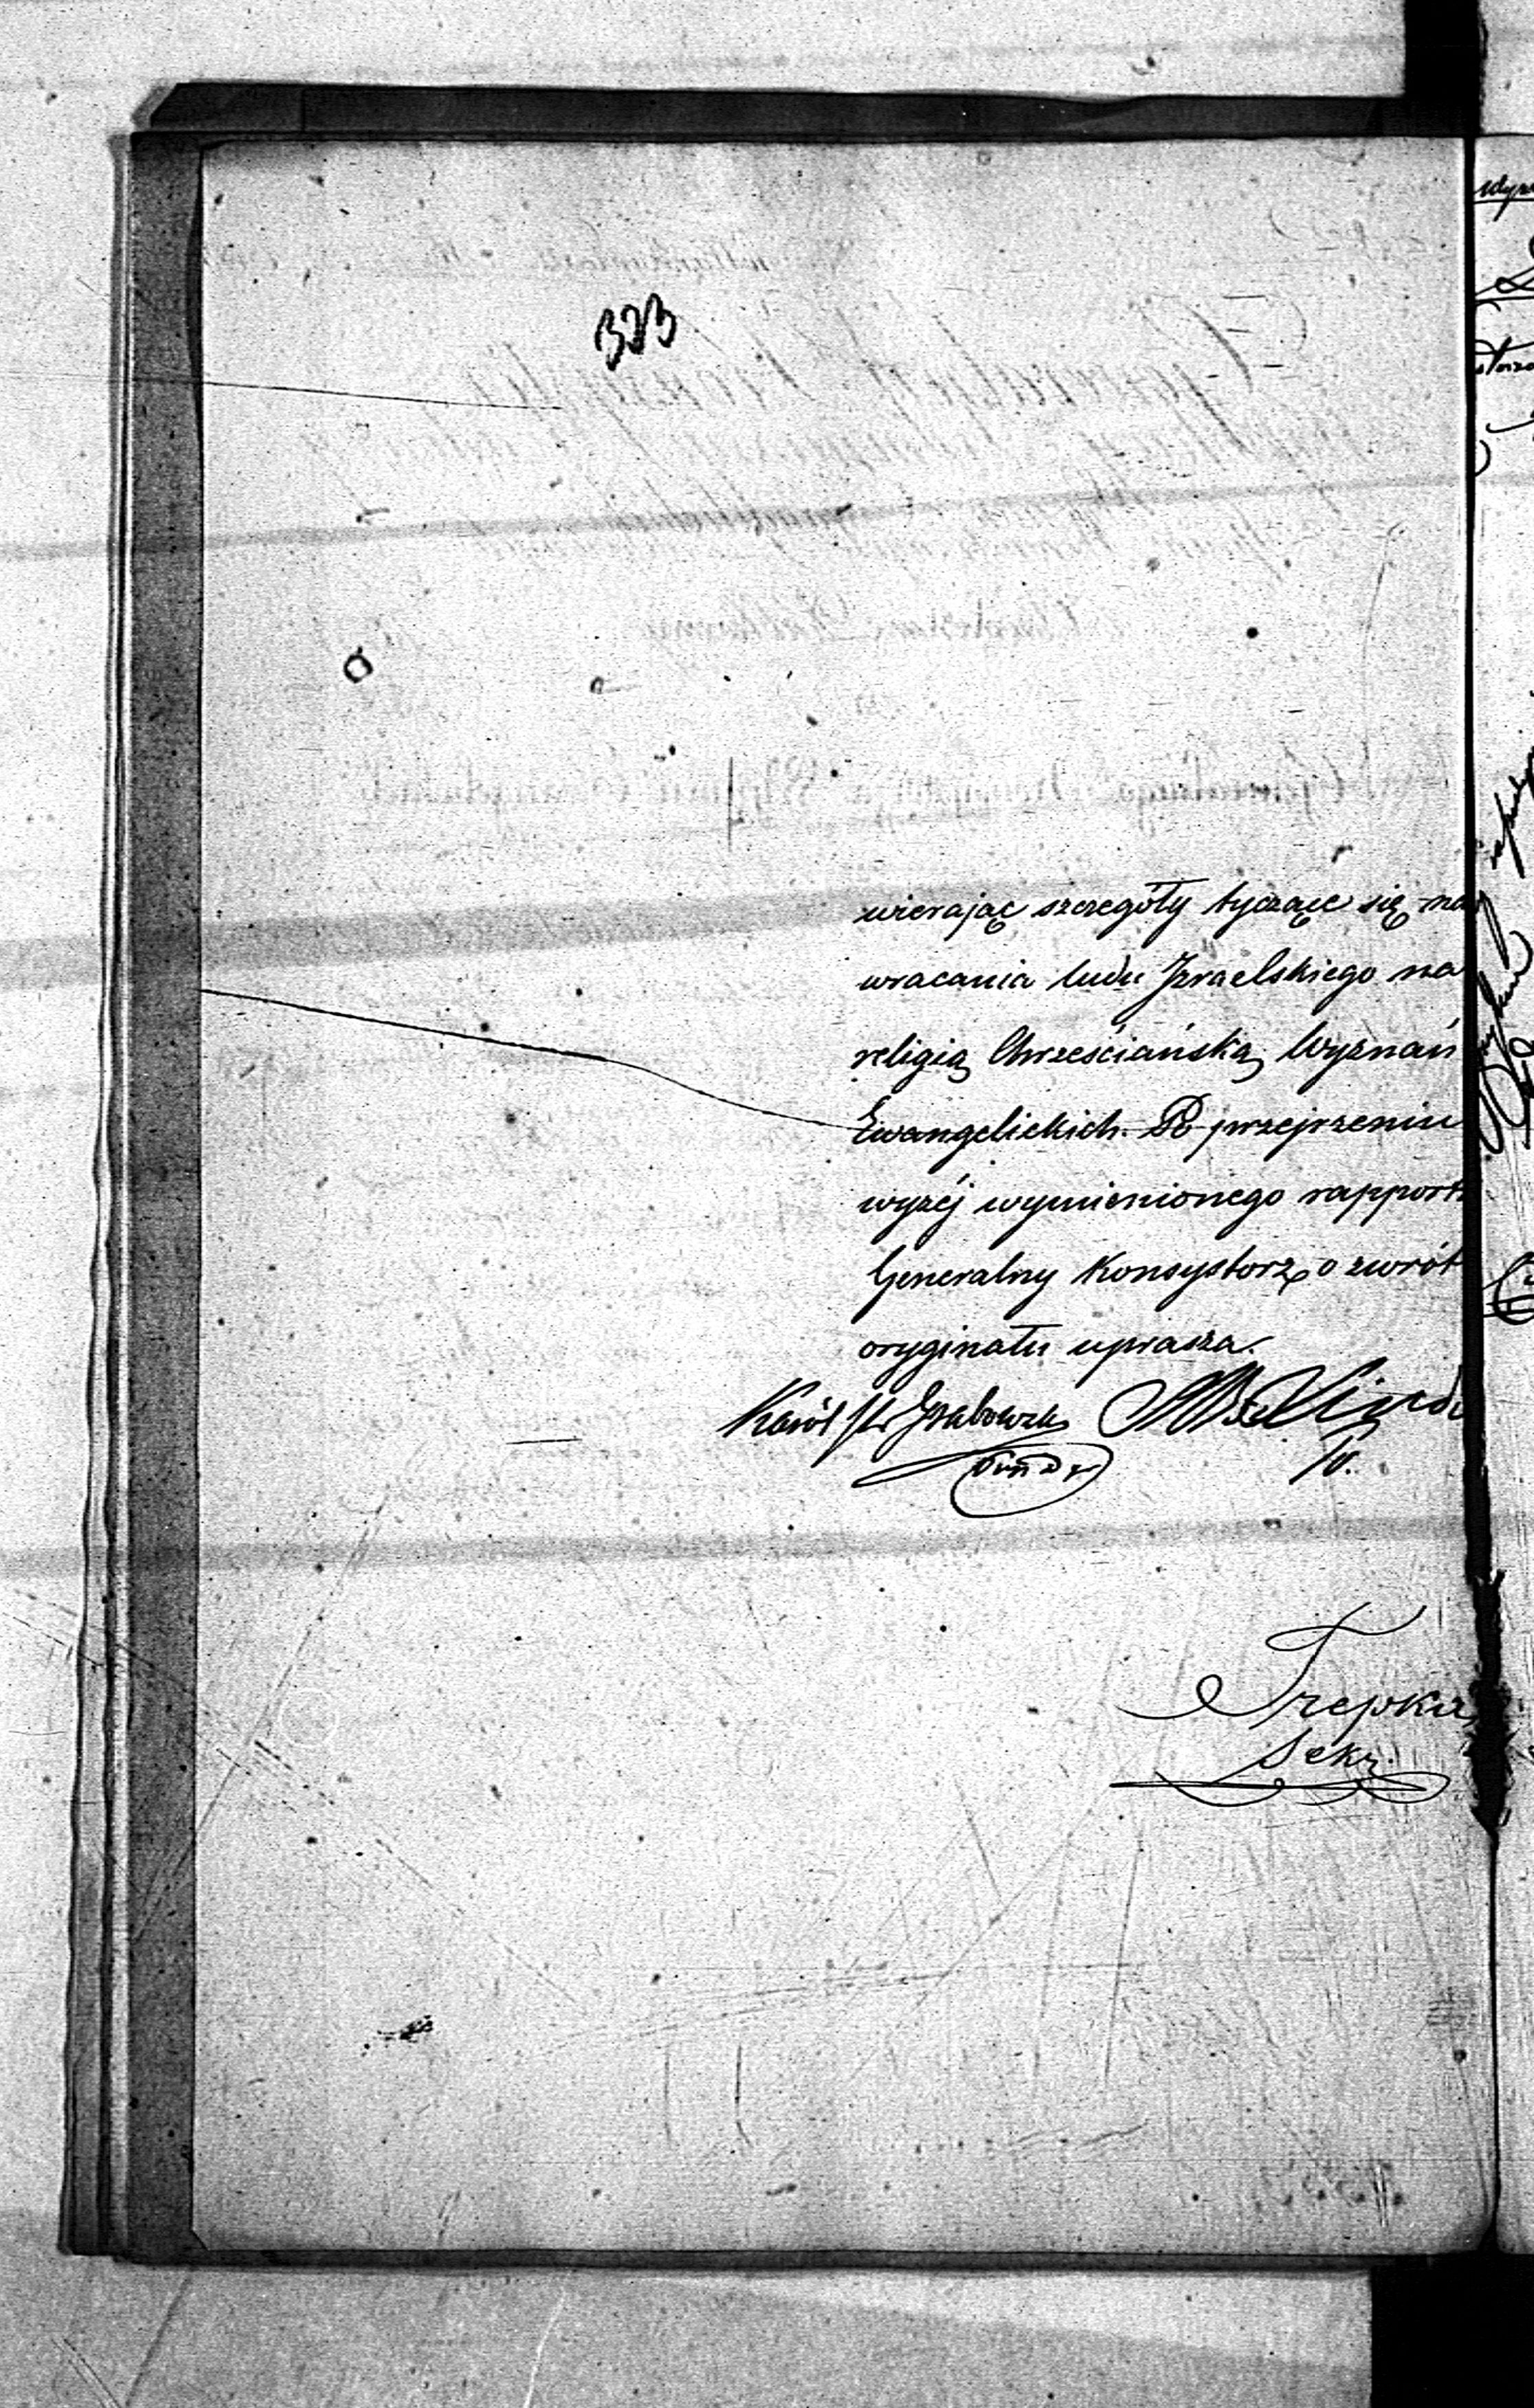 323
wierając szczegóły tyczące się na
wracania ludu Izraelskiego na
religią Chrześciańską Wyznań
Ewangelickich. Po przejrzeniu
wyżéj wymienionego rapport
Generalny Konsystorz o zwrót
oryginału uprasza.
Karól Grabowski
Trepka
Sekr.